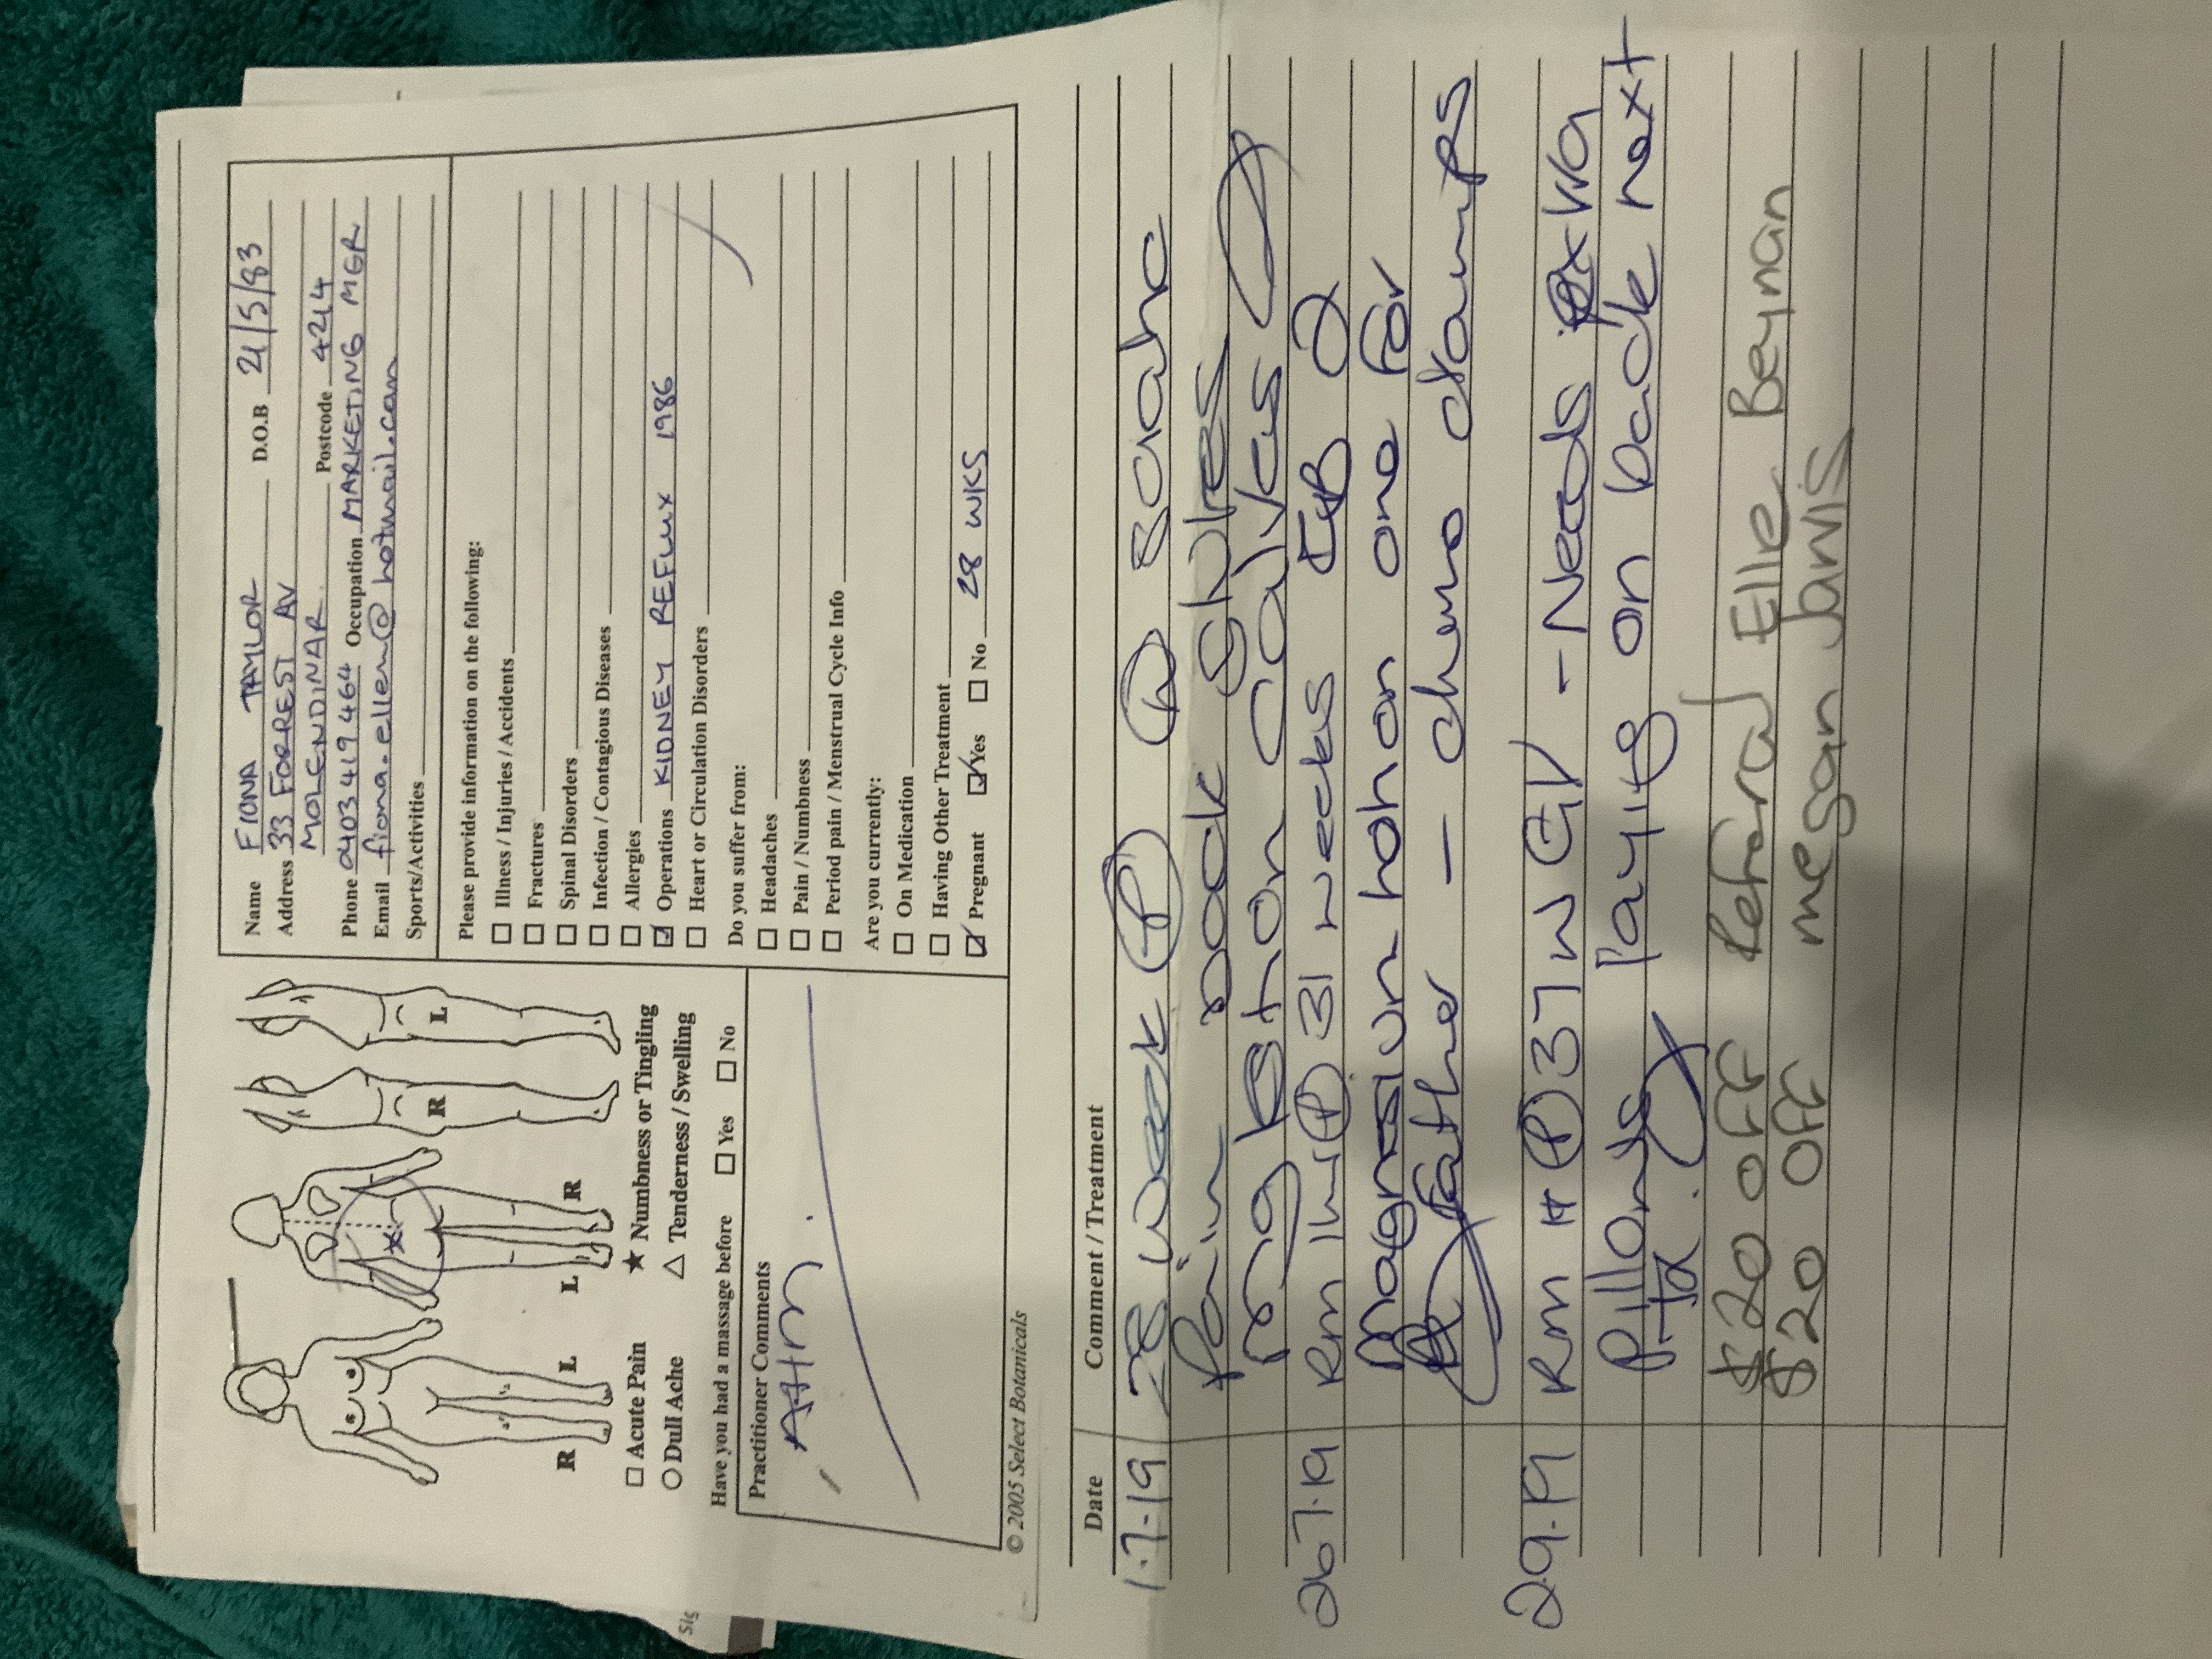 Name FIONA TAYLOR D.O.B 21/5/83
Address 33 FORREST AV
MOLENDINAR Postcode 4214
Phone 0403 419 464 Occupation MARKETING MGR
Email fiona.ellem@hotmail.com
Sports/Activities
Please provide information on the following:
Illness / Injuries / Accidents
Fractures
Spinal Disorders
Infection / Contagious Diseases
Allergies
Operations KIDNEY REFLUX 1986
Heart or Circulation Disorders
Do you suffer from:
Headaches
Pain / Numbness
Period pain / Menstrual Cycle Info
Are you currently:
On Medication
Having Other Treatment
Pregnant Yes No 28 WKS
R L L R R L
Acute Pain ★ Numbness or Tingling
Dull Ache △ Tenderness / Swelling
Have you had a massage before Yes No
Practitioner Comments
AHM
© 2005 Select Botanicals
Sig
Date Comment / Treatment
1.7.19 28 week (P)
Pain
calves
26.7.19 Rm (P) 31 weeks
magnesium lotion one for
father - chemo
2.9.19 Rm (P) 37 w - Needs extra
Pillows laying on back next
tx.
$20 off Referral Elle Beynan
$20 off megan Janis